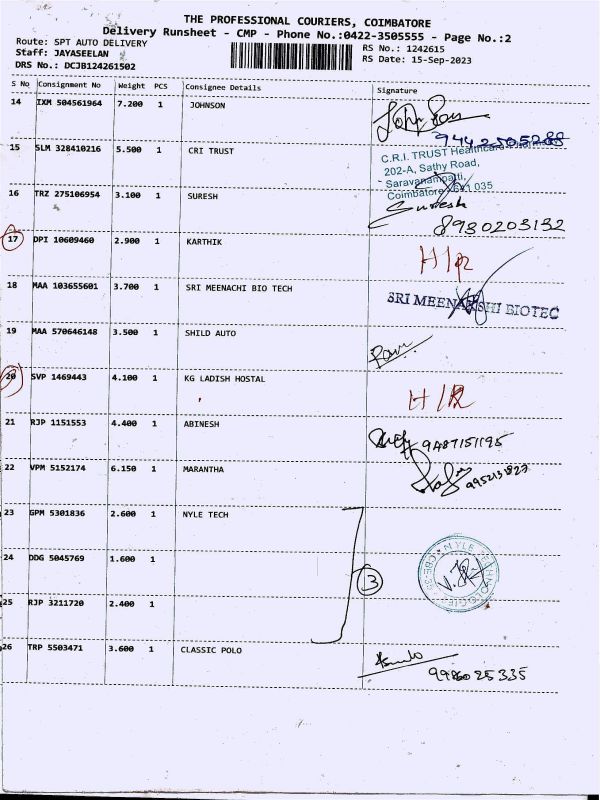 THE PROFESSIONAL COURIERS, COIMBATORE
Delivery Runsheet - CMP - Phone No.:0422-3505555 - Page No.:2
Route: SPT AUTO DELIVERY
Staff: JAYASEELAN
DRS No.: DCJB124261502
RS No.: 1242615
RS Date: 15-Sep-2023
S No Consignment No Weight PCS Consignee Details Signature
14 IXM 504561964 7.200 1 JOHNSON
9442505288
15 SLM 328410216 5.500 1 CRI TRUST
C.R.I. TRUST Healthcare
202-A, Sathy Road,
Saravanampatti,
Coimbatore 641 035
16 TRZ 275106954 3.100 1 SURESH
Suresh
8930203132
17 DPI 10609460 2.900 1 KARTHIK
18 MAA 103655601 3.700 1 SRI MEENACHI BIO TECH
SRI MEENAKSHI BIOTEC
19 MAA 570646148 3.500 1 SHILD AUTO
20 SVP 1469443 4.100 1 KG LADISH HOSTAL
H/R
21 RJP 1151553 4.400 1 ABINESH
9487151195
22 VPM 5152174 6.150 1 MARANTHA
23 GPM 5301836 2.600 1 NYLE TECH
24 DDG 5045769 1.600 1
3
25 RJP 3211720 2.400 1
26 TRP 5503471 3.600 1 CLASSIC POLO
9986025335